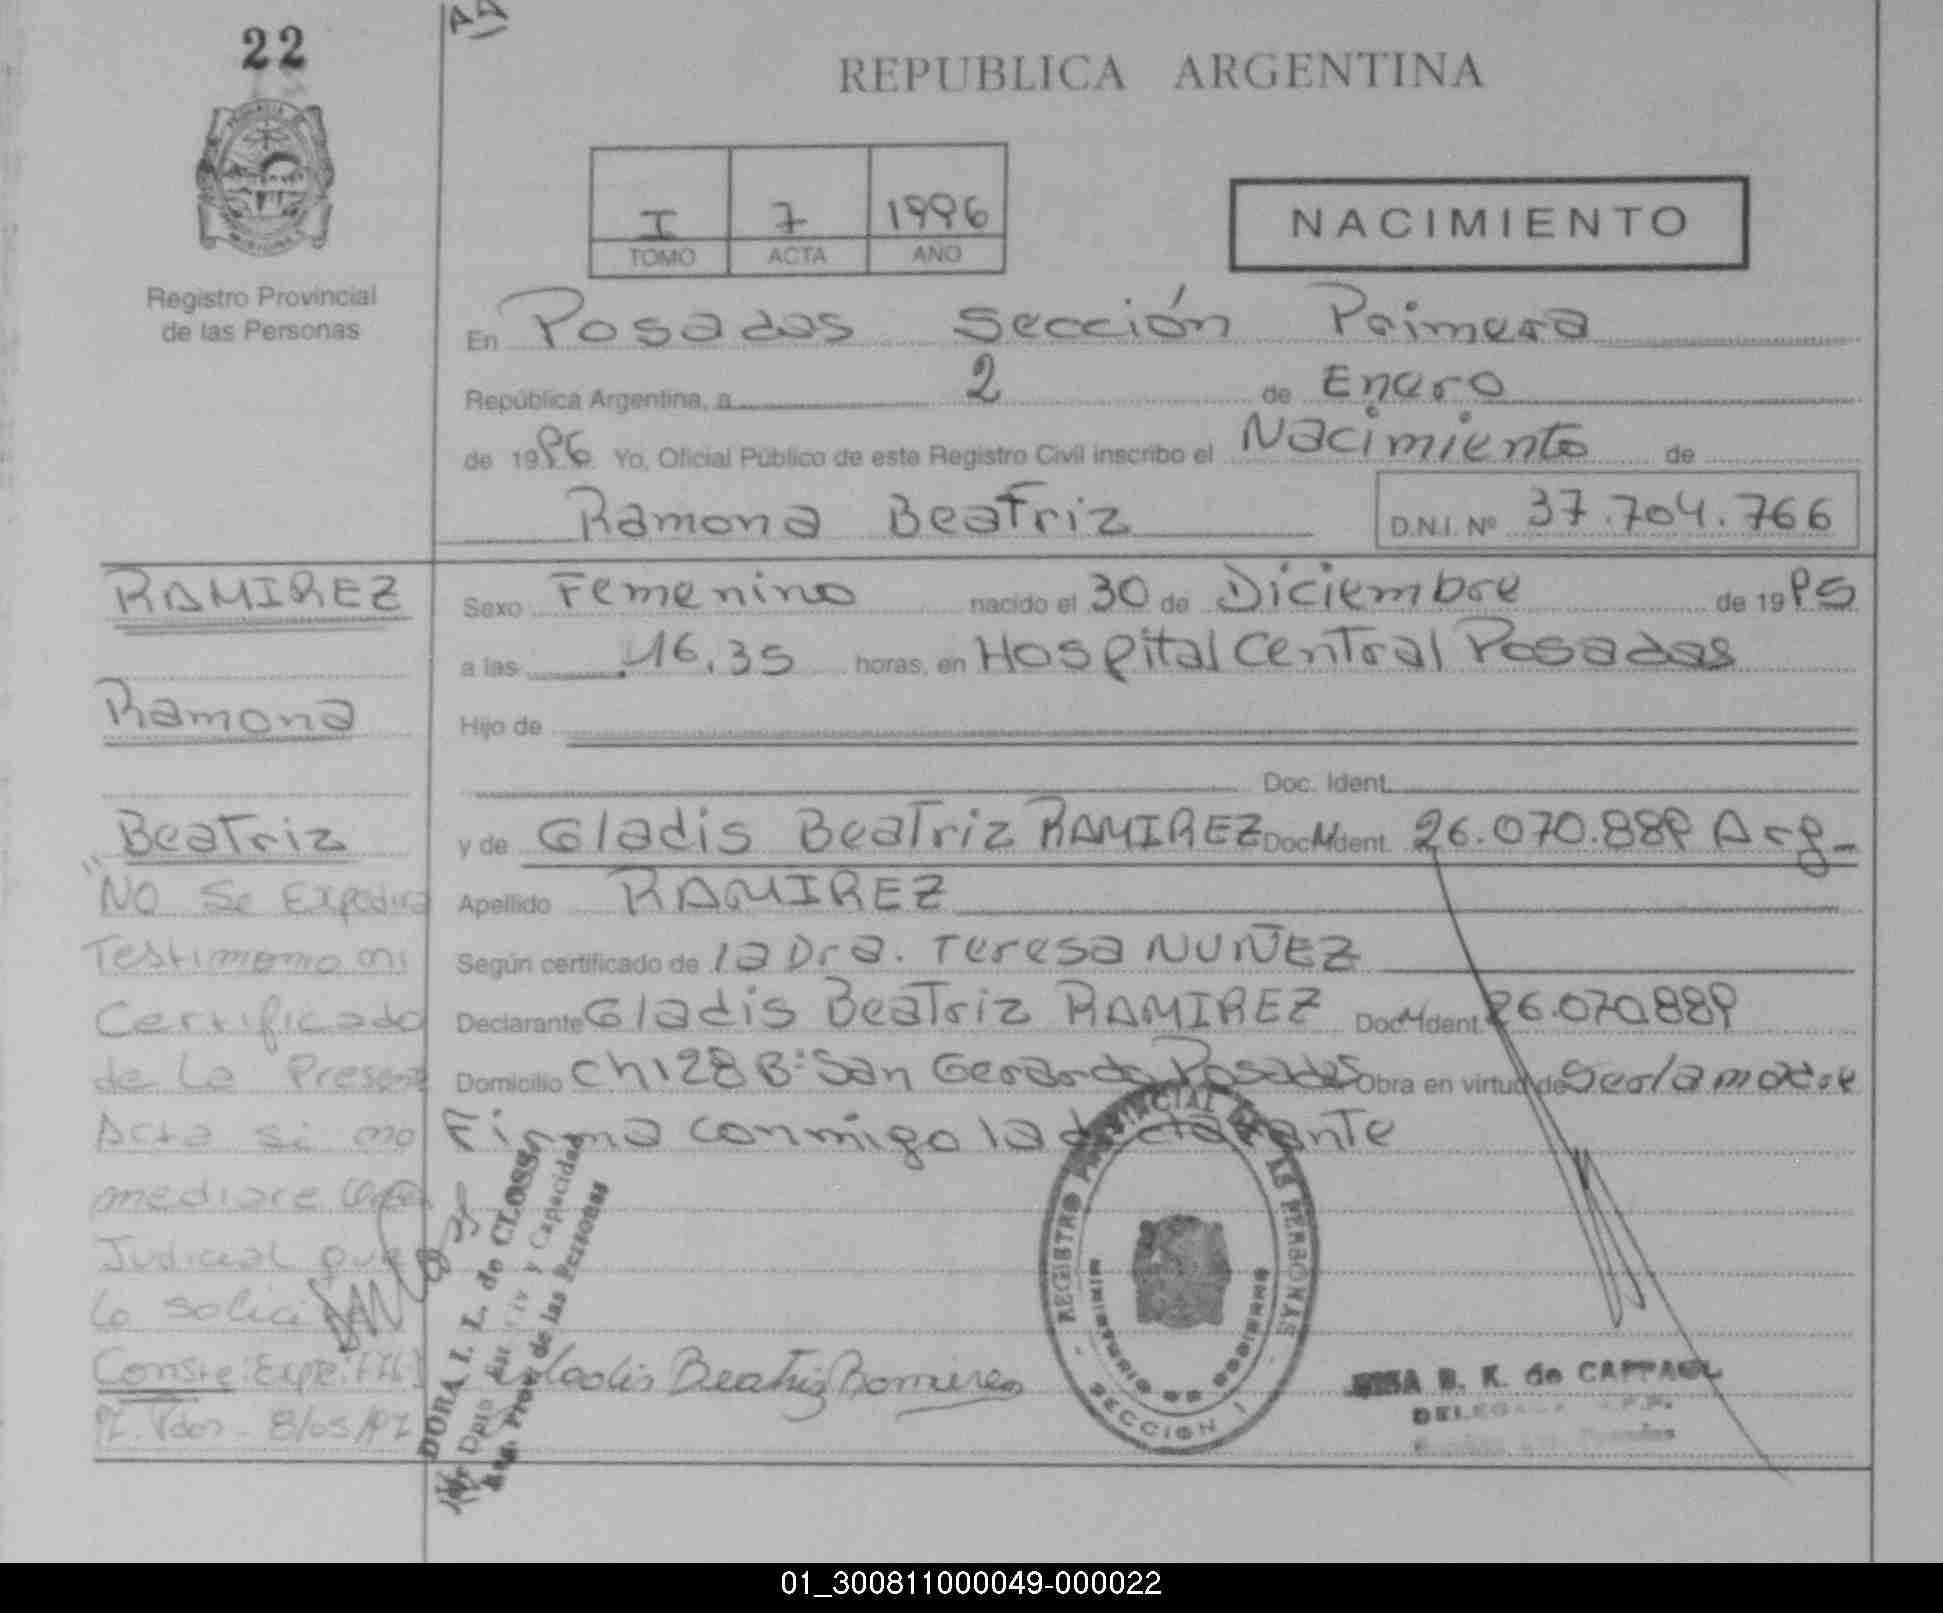 22
AA
REPUBLICA ARGENTINA
I 7 1996
TOMO ACTA AÑO
NACIMIENTO
Registro Provincial
de las Personas
En Posadas Sección Primera
República Argentina, a 2 de Enero
de 1996 Yo, Oficial Público de este Registro Civil inscribo el Nacimiento de
Ramona Beatriz
D.N.I. Nº 37.704.766
RAMIREZ
Ramona
Beatriz
Sexo Femenino nacido el 30 de Diciembre de 1995
a las 16.35 horas, en Hospital Central Posadas
Hijo de
Doc. Ident.
y de Gladis Beatriz RAMIREZ Doc. Ident. 26.070.889 Arg.
Apellido RAMIREZ
Según certificado de la Dra. Teresa NUÑEZ
Declarante Gladis Beatriz RAMIREZ Doc. Ident. 26.070.889
Domicilio Ch 128 B: San Gerardo Posadas Obra en virtud de Ser la madre
Firma conmigo la declarante
"NO Se Expedira
Testimonio ni
Certificado
de La Presente
Acta si no
mediare
Judicial que
lo solici
Conste: Expte:
8/05/97
DORA I. L. de CLOSS
y Capacidad
Prov. de las Personas
Gladis Beatriz Ramirez
REGISTRO PROVINCIAL DE LAS PERSONAS
MINISTERIO DE GOBIERNO
SECCION 1
B. K. de CAPPAOL
01_300811000049-000022